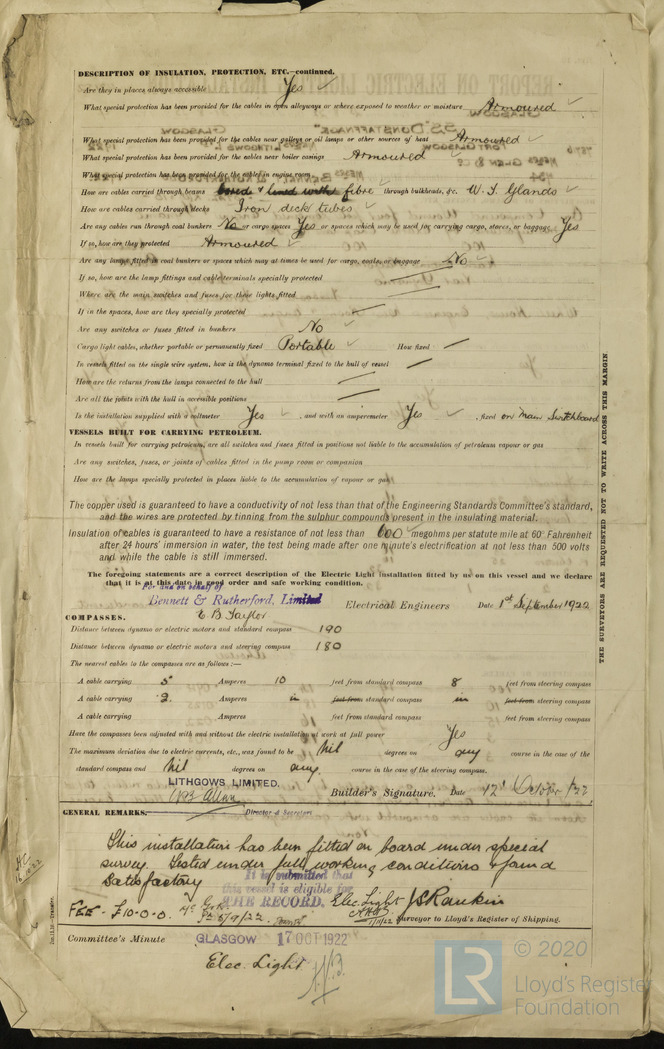 DESCRIPTION OF INSULATION, PROTECTION, ETC.—continued.
Are they in places always accessible Yes
What special protection has been provided for the cables in open alleyways or where exposed to weather or moisture Armoured
What special protection has been provided for the cables near galleys or oil lamps or other sources of heat Armoured
What special protection has been provided for the cables near boiler casings Armoured
What special protection has been provided for the cables in engine room
How are cables carried through beams bored & lined with fibre through bulkheads, &c. W.T. Glands
How are cables carried through decks Iron deck tubes
Are any cables run through coal bunkers No or cargo spaces Yes or spaces which may be used for carrying cargo, stores, or baggage Yes
If so, how are they protected Armoured
Are any lamps fitted in coal bunkers or spaces which may at times be used for cargo, coals, or baggage No
If so, how are the lamp fittings and cable terminals specially protected
Where are the main switches and fuses for these lights fitted
If in the spaces, how are they specially protected
Are any switches or fuses fitted in bunkers No
Cargo light cables, whether portable or permanently fixed Portable How fixed
In vessels fitted on the single wire system, how is the dynamo terminal fixed to the hull of vessel
How are the returns from the lamps connected to the hull
Are all the joints with the hull in accessible positions
Is the installation supplied with a voltmeter Yes, and with an amperemeter Yes, fixed on Main Switchboard
VESSELS BUILT FOR CARRYING PETROLEUM.
In vessels built for carrying petroleum, are all switches and fuses fitted in positions not liable to the accumulation of petroleum vapour or gas
Are any switches, fuses, or joints of cables fitted in the pump room or companion
How are the lamps specially protected in places liable to the accumulation of vapour or gas
The copper used is guaranteed to have a conductivity of not less than that of the Engineering Standards Committee's standard,
and the wires are protected by tinning from the sulphur compounds present in the insulating material.
Insulation of cables is guaranteed to have a resistance of not less than 600 megohms per statute mile at 60° Fahrenheit
after 24 hours' immersion in water, the test being made after one minute's electrification at not less than 500 volts
and while the cable is still immersed.
The foregoing statements are a correct description of the Electric Light installation fitted by us on this vessel and we declare
that it is at this date in good order and safe working condition.
For and on behalf of
Bennett & Rutherford, Limited Electrical Engineers Date 1st September 1922
E B Taylor
COMPASSES.
Distance between dynamo or electric motors and standard compass 190
Distance between dynamo or electric motors and steering compass 180
The nearest cables to the compasses are as follows:—
A cable carrying 5 Amperes 10 feet from standard compass 8 feet from steering compass
A cable carrying 2. Amperes in feet from standard compass in feet from steering compass
A cable carrying Amperes feet from standard compass feet from steering compass
Have the compasses been adjusted with and without the electric installation at work at full power Yes
The maximum deviation due to electric currents, etc., was found to be Nil degrees on any course in the case of the
standard compass and Nil degrees on any. course in the case of the steering compass.
LITHGOWS LIMITED.
Builder's Signature. Date 12' October /22
Director & Secretary
GENERAL REMARKS.
This installation has been fitted on board under special
survey. Tested under full working conditions & found
Satisfactory
It is submitted that
this vessel is eligible for
THE RECORD. Elec. Light J S Rankin
FEE - £10-0-0.
Surveyor to Lloyd's Register of Shipping.
Committee's Minute GLASGOW 17 OCT 1922
Elec. Light
THE SURVEYORS ARE REQUESTED NOT TO WRITE ACROSS THIS MARGIN
H.C.
16.10.22
LR
© 2020
Lloyd's Register
Foundation